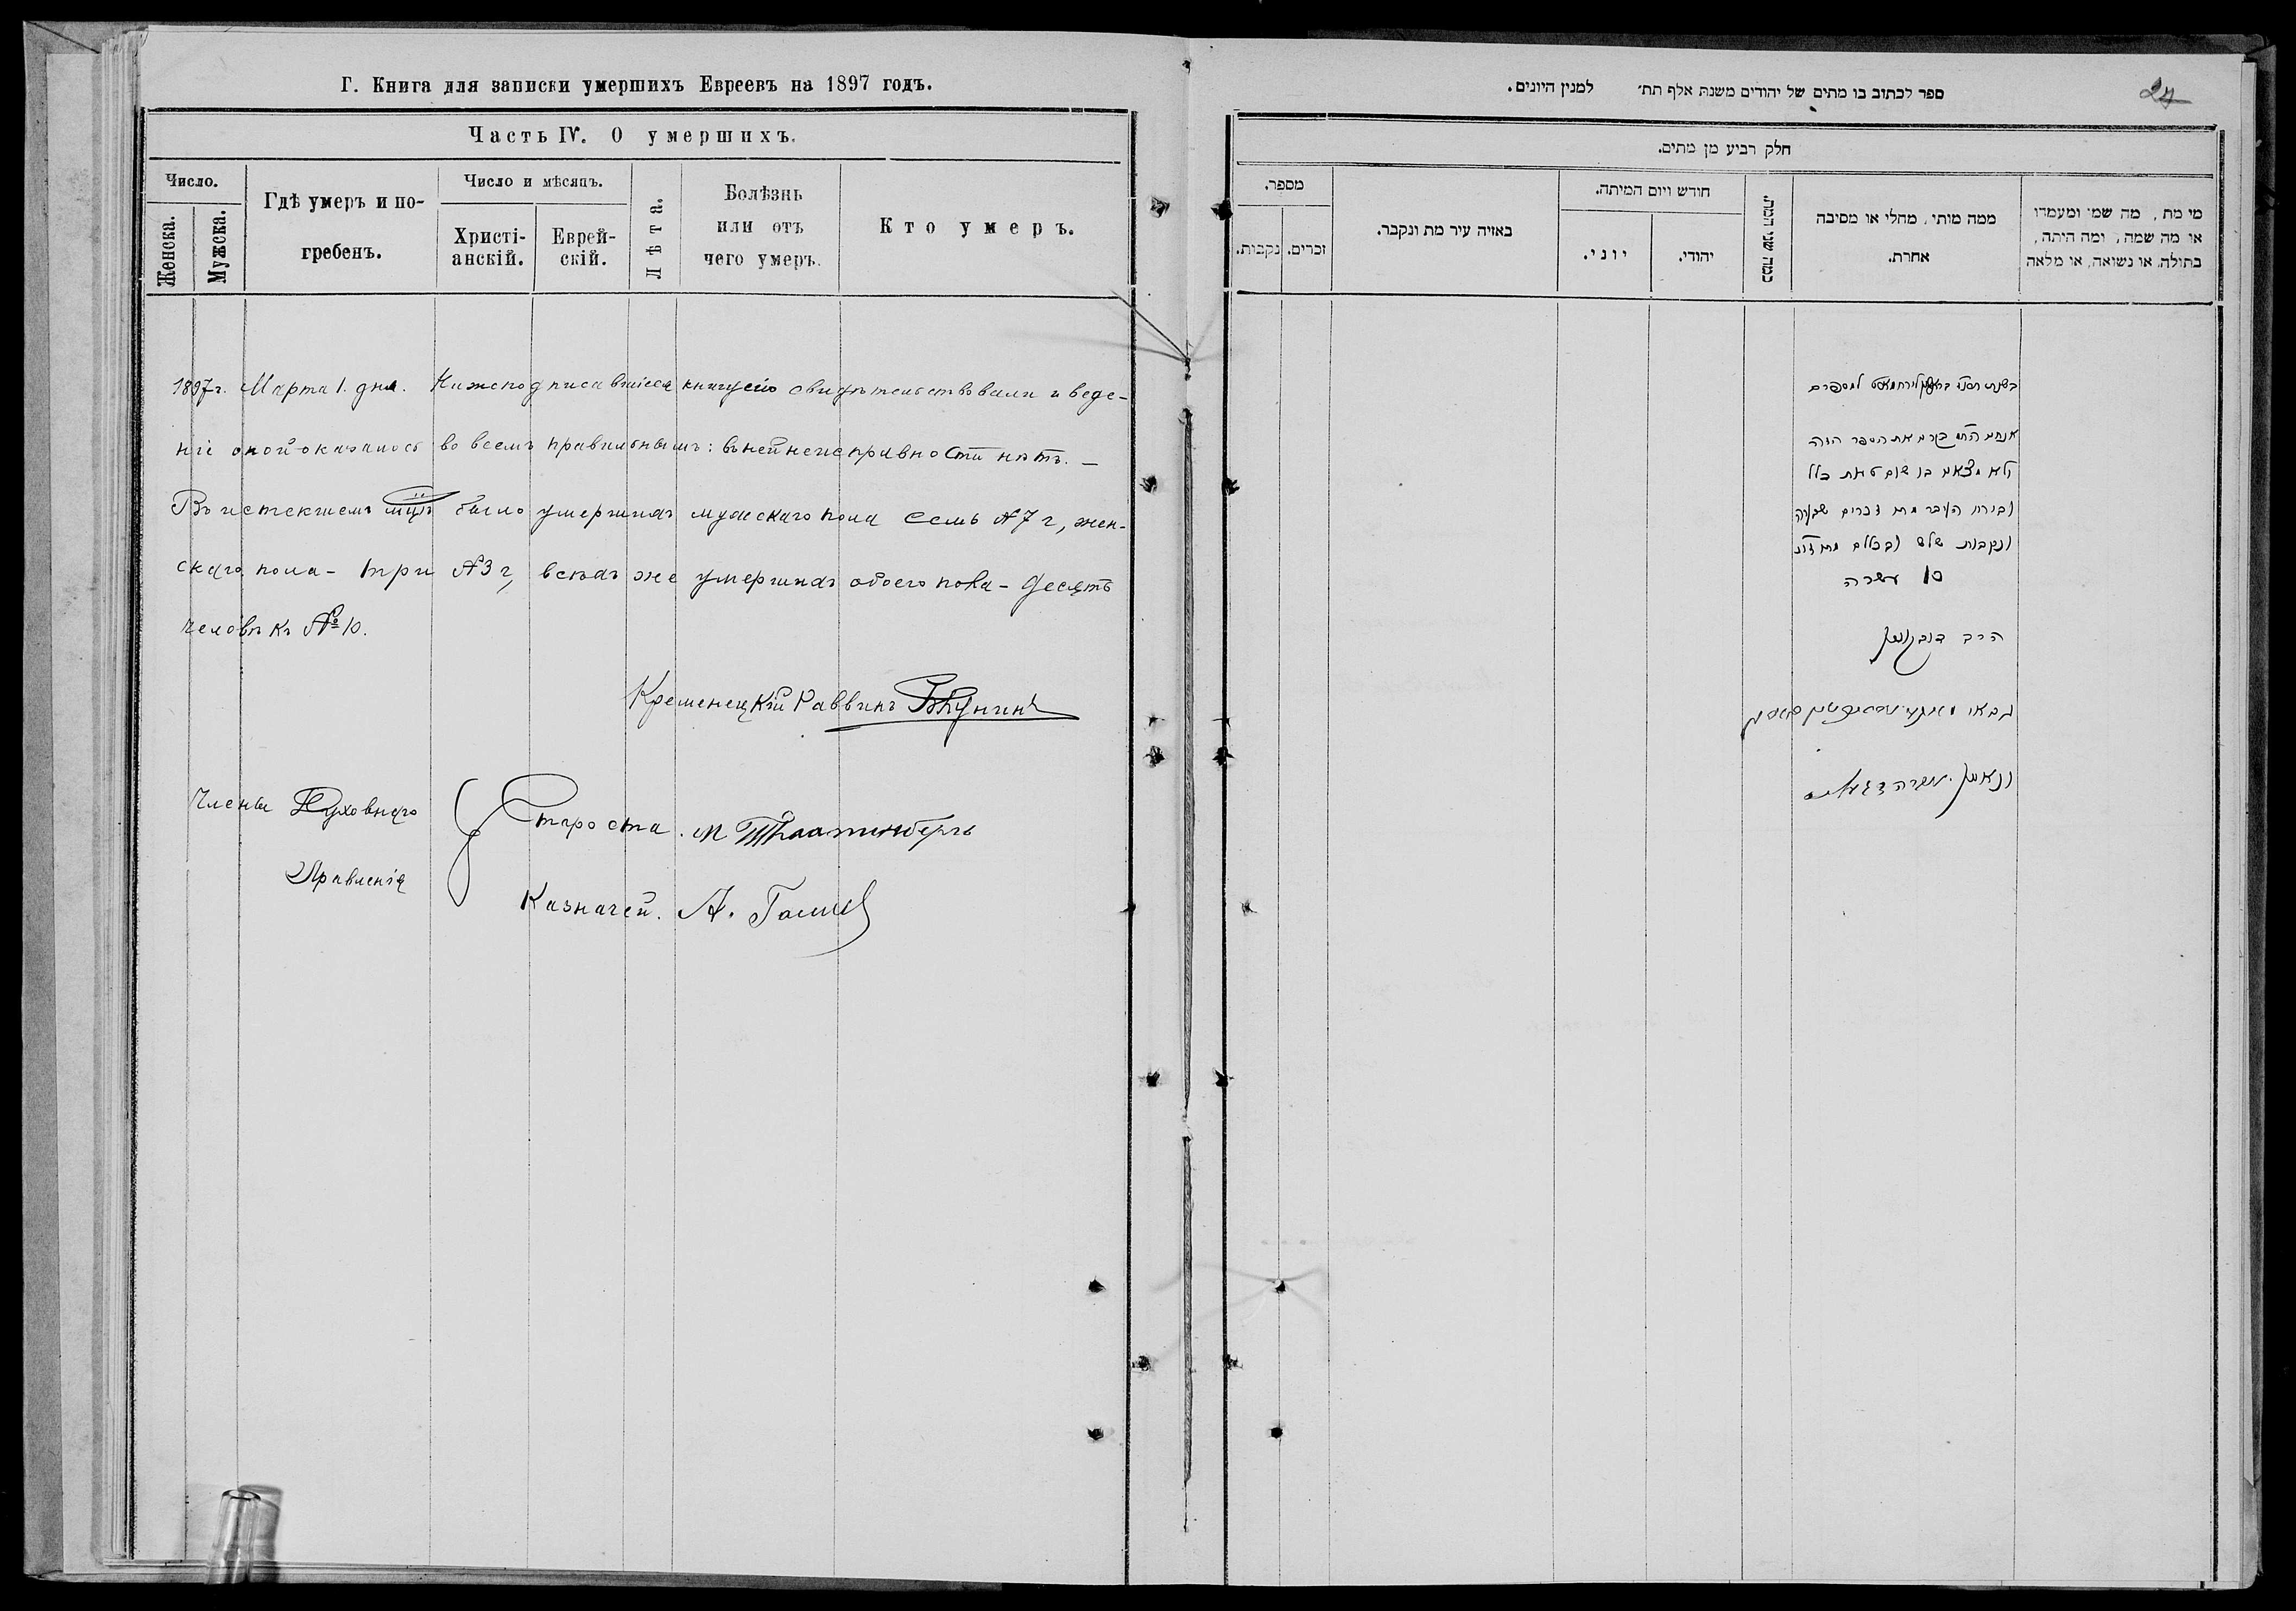 Г. Книга для записки умершихъ Евреевъ на 1897 годъ.
Часть IV. О умершихъ.
Число.
Женска.
Мужска.
Гдѣ умеръ и по-
гребенъ.
Число и мѣсяцъ.
Христі-
анскій.
Еврей-
скій.
Лѣта.
Болѣзнь
или отъ
чего умеръ.
Кто умеръ.
1897 г. Марта 1. дня. Нижеподписавшіеся книгу сію свидѣтельствовали и веде-
ніе оной оказалось во всемъ правильнымъ: въ ней неисправности нѣтъ. —
Въ истекшемъ мцѣ было умершихъ мужскаго пола семь №7 г, жен-
скаго пола - три №3 г, всѣхъ же умершихъ обоего пола - десять
человѣкъ № 10.
Кременецкій Раввинъ
Члены Духовнаго
Правленія
Староста. М
Казначей. А.
ספר לכתוב בו מתים של יהודים משנת אלף תת׳ למנין היונים.
27
חלק רביע מן מתים.
מספר.
נקבות.
זכרים.
באיזה עיר מת ונקבר.
חודש ויום המיתה.
יוני.
יהודי.
כמה שני המת.
ממה מותי, מחלי או מסיבה
אחרת.
מי מת, מה שמו ומעמדו
או מה שמה, ומה היתה,
בתולה, או נשואה, או מלאה
את הספר הזה
ולא מצאנו בו שום טעות כלל
מתו זכרים שבעה
ונקבות שלש ובכללם
10 עשרה
הרב